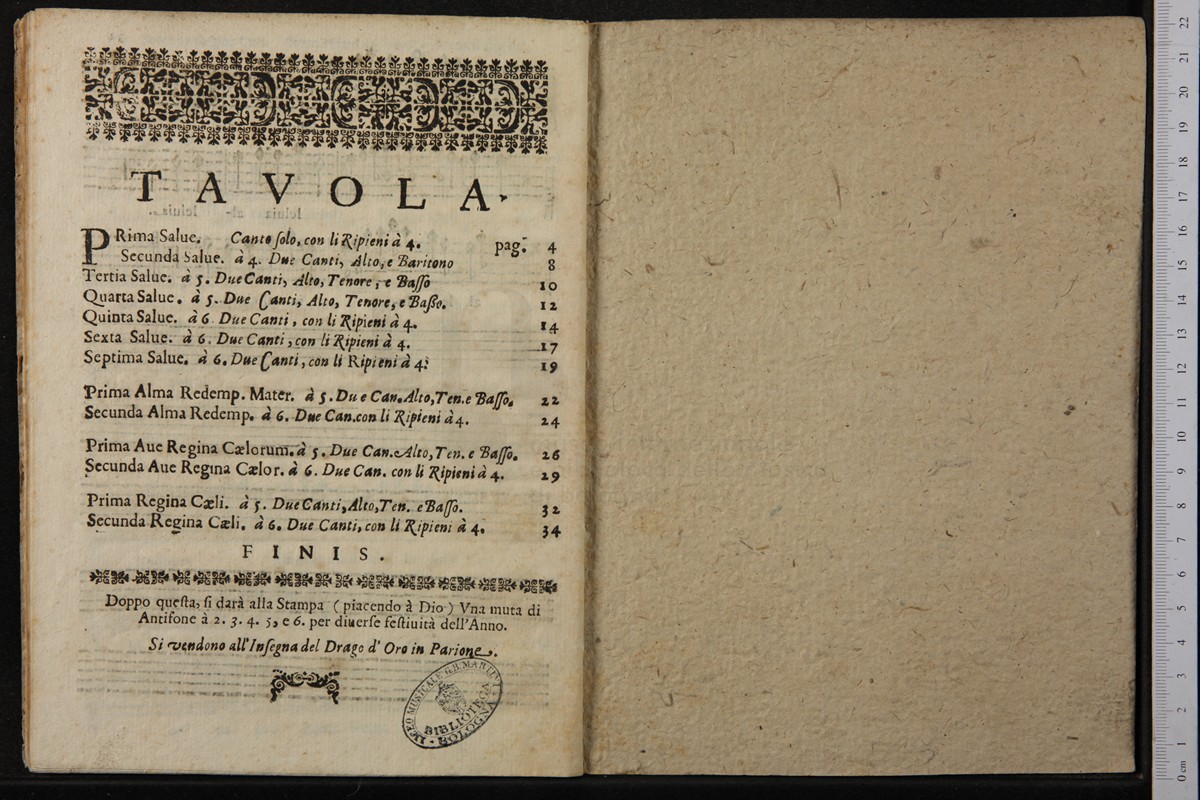 TAVOLA.
PRima Salue. Canto ſolo, con li Ripieni à 4. pag. 4
Secunda Salue. à 4. Due Canti, Alto, e Baritono 8
Tertia Salue. à 5. Due Canti, Alto, Tenore, e Baſſo 10
Quarta Salue. à 5. Due Canti, Alto, Tenore, e Baßo. 12
Quinta Salue. à 6. Due Canti, con li Ripieni à 4. 14
Sexta Salue. à 6. Due Canti, con li Ripieni à 4. 17
Septima Salue. à 6. Due Canti, con li Ripieni à 4. 19
Prima Alma Redemp. Mater. à 5. Due Can. Alto, Ten. e Baſſo. 22
Secunda Alma Redemp. à 6. Due Can. con li Ripieni à 4. 24
Prima Aue Regina Cælorum. à 5. Due Can. Alto, Ten. e Baſſo. 26
Secunda Aue Regina Cælor. à 6. Due Can. con li Ripieni à 4. 29
Prima Regina Cæli. à 5. Due Canti, Alto, Ten. e Baſſo. 32
Secunda Regina Cæli. à 6. Due Canti, con li Ripieni à 4. 34
FINIS.
Doppo queſta, ſi darà alla Stampa (piacendo à Dio) Vna muta di
Antifone à 2. 3. 4. 5, e 6. per diuerſe feſtiuità dell'Anno.
Si vendono all'Inſegna del Drago d'Oro in Parione.
LICEO MUSICALE G.B. MARTINI
BIBLIOTECA
BOLOGNA
0 cm 1 2 3 4 5 6 7 8 9 10 11 12 13 14 15 16 17 18 19 20 21 22